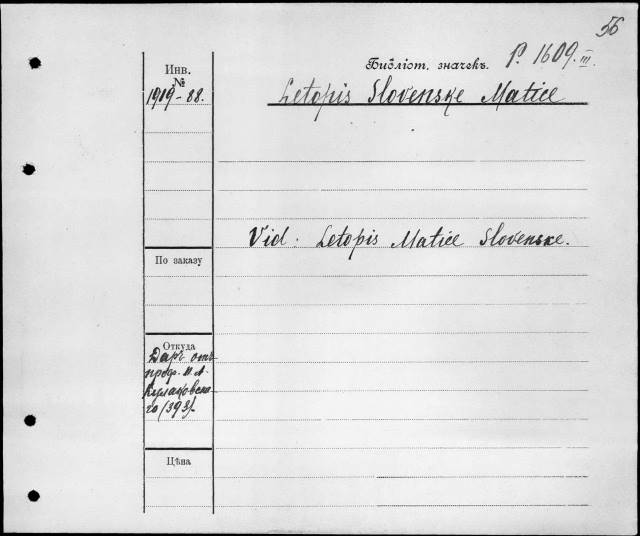 56
Инв.
№
1919-88.
Библіот. значекъ. P. 1609. III.
Letopis Slovenske Matice
Vid: Letopis Matice Slovenske.
По заказу
Откуда
Даръ отъ
проф.
Кулаковска-
го (393).
Цѣна